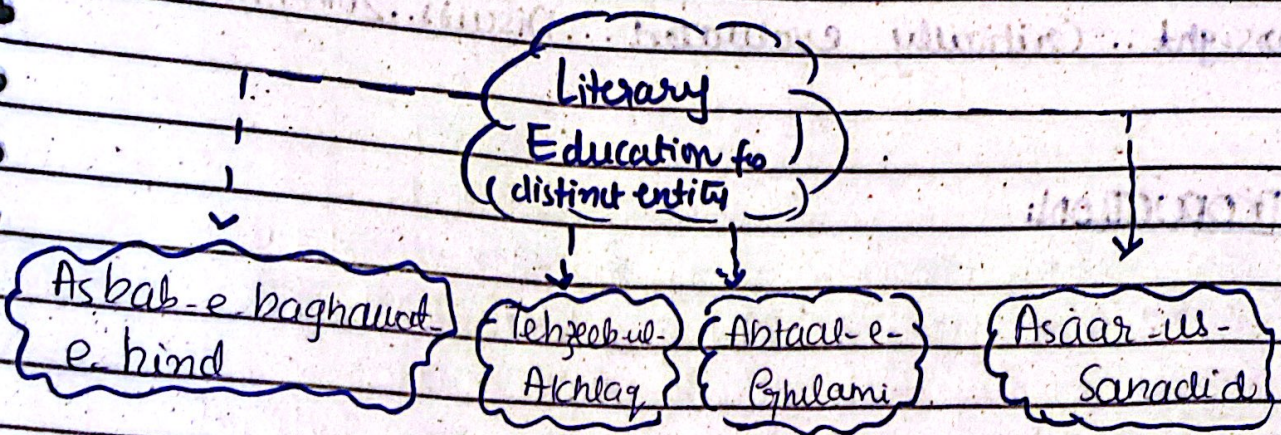 Literary
Education fo
distinct entity
Asbab-e-baghawat-
e-hind
Tehzeebul-
Akhlaq
Abtaal-e-
Ghulami
Asaar-us-
Sanadid